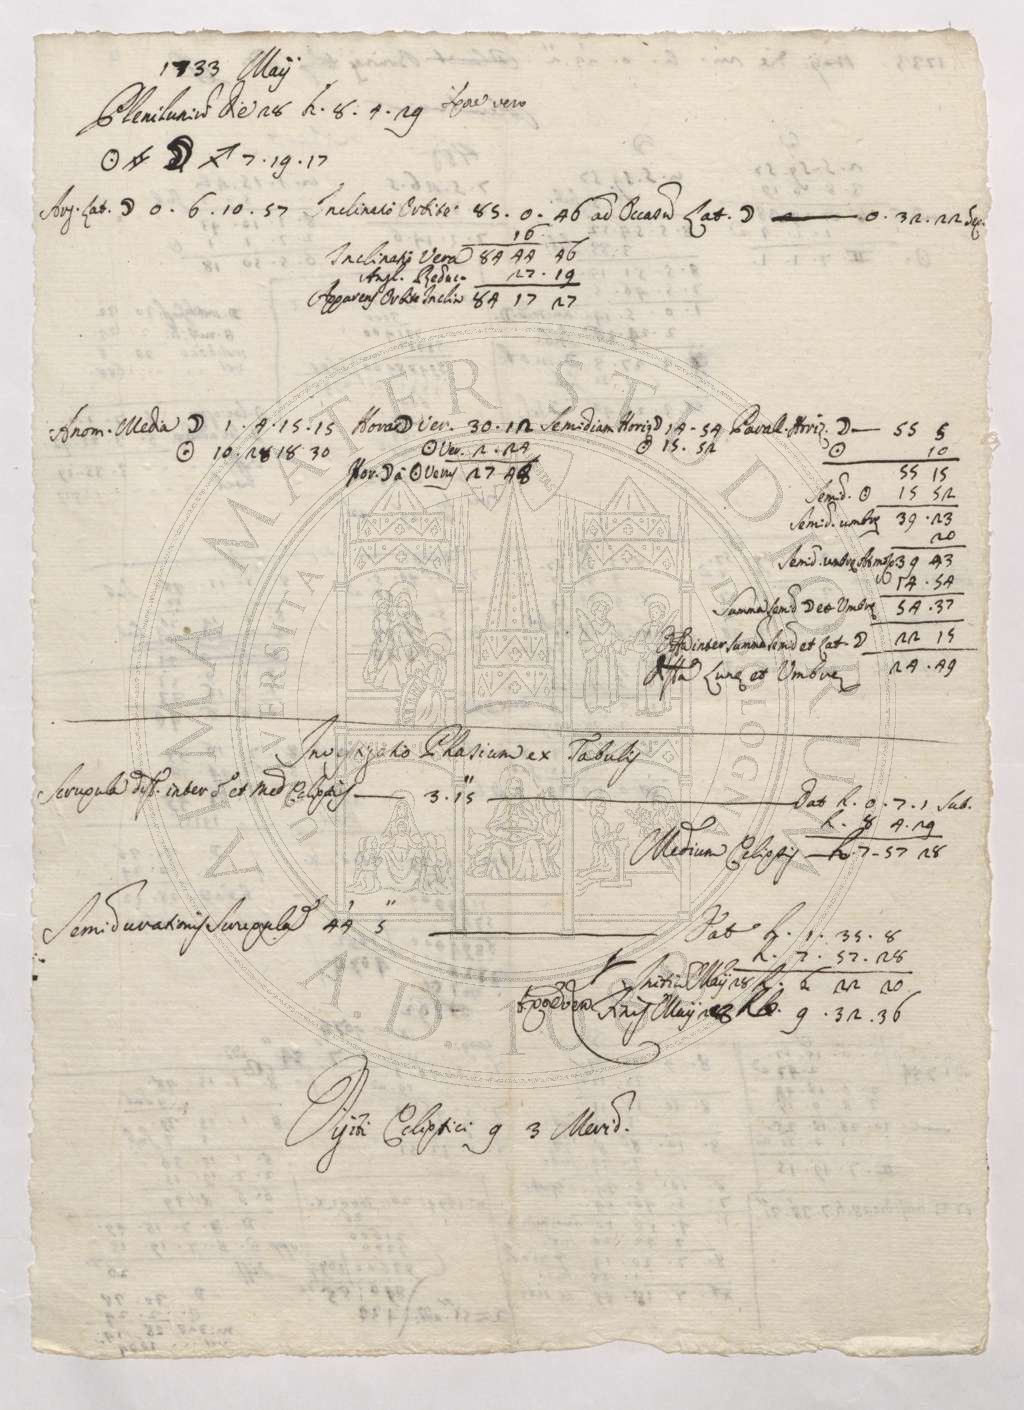 1733 Maij
Plenilunium die 28 h. 8. 4. 29 tpore vero
☉ ♐ ☽ ♐ 7. 19. 17
Arg. Lat. ☽ 0. 6. 10. 57 Inclinatio Orbitę 85. 0. 46 ad Occasum Lat. ☽ 0. 32. 22 Sep.
16
Inclinatio Vera 84 44 46
Angl. Reduc. 27. 19
Apparens Orbitę Inclin 84 17 27
Anom. Media ☽ 1. 4. 15. 15 Hora ☽ Ver. 30. 12 Semidiam Horiz ☽ 14. 54 Paral. Horiz. ☽ 55 5
☉ 10. 28 18 30 ☉ Ver. 2. 24 ☉ 15. 52 ☉ 10
Hor. ☽ a ☉ Verus 27 48 55 15
Semid. ☉ 15 52
Semid. umbrę 39. 23
20
Semid. umbrę Atmosp. 39 43
14. 54
Summa semid ☽ et Umbrę 54. 37
Dffa inter summam semid et Lat. ☽ 22 15
Dffa Lunę et Umbrę 24. 49
Investigatio Phasium ex Tabulis
Scrupula dist. inter et med Eclipsis 3. 15'' Dat h. 0. 7. 1 Sub.
h. 8 4. 29
Medium Eclipsis h. 7. 57 28
Semidurationis Scrupula 44' 5'' Dat h. 1. 35. 8
h. 7. 57. 28
Initium Maij 28 h. 6 22 20
tpore vero Finis Maij 28 h. 9. 32. 36
Digiti Ecliptici 9 3 Merid.
ALMA MATER STUDIORUM
UNIVERSITÀ DI BOLOGNA
A.D. 1088